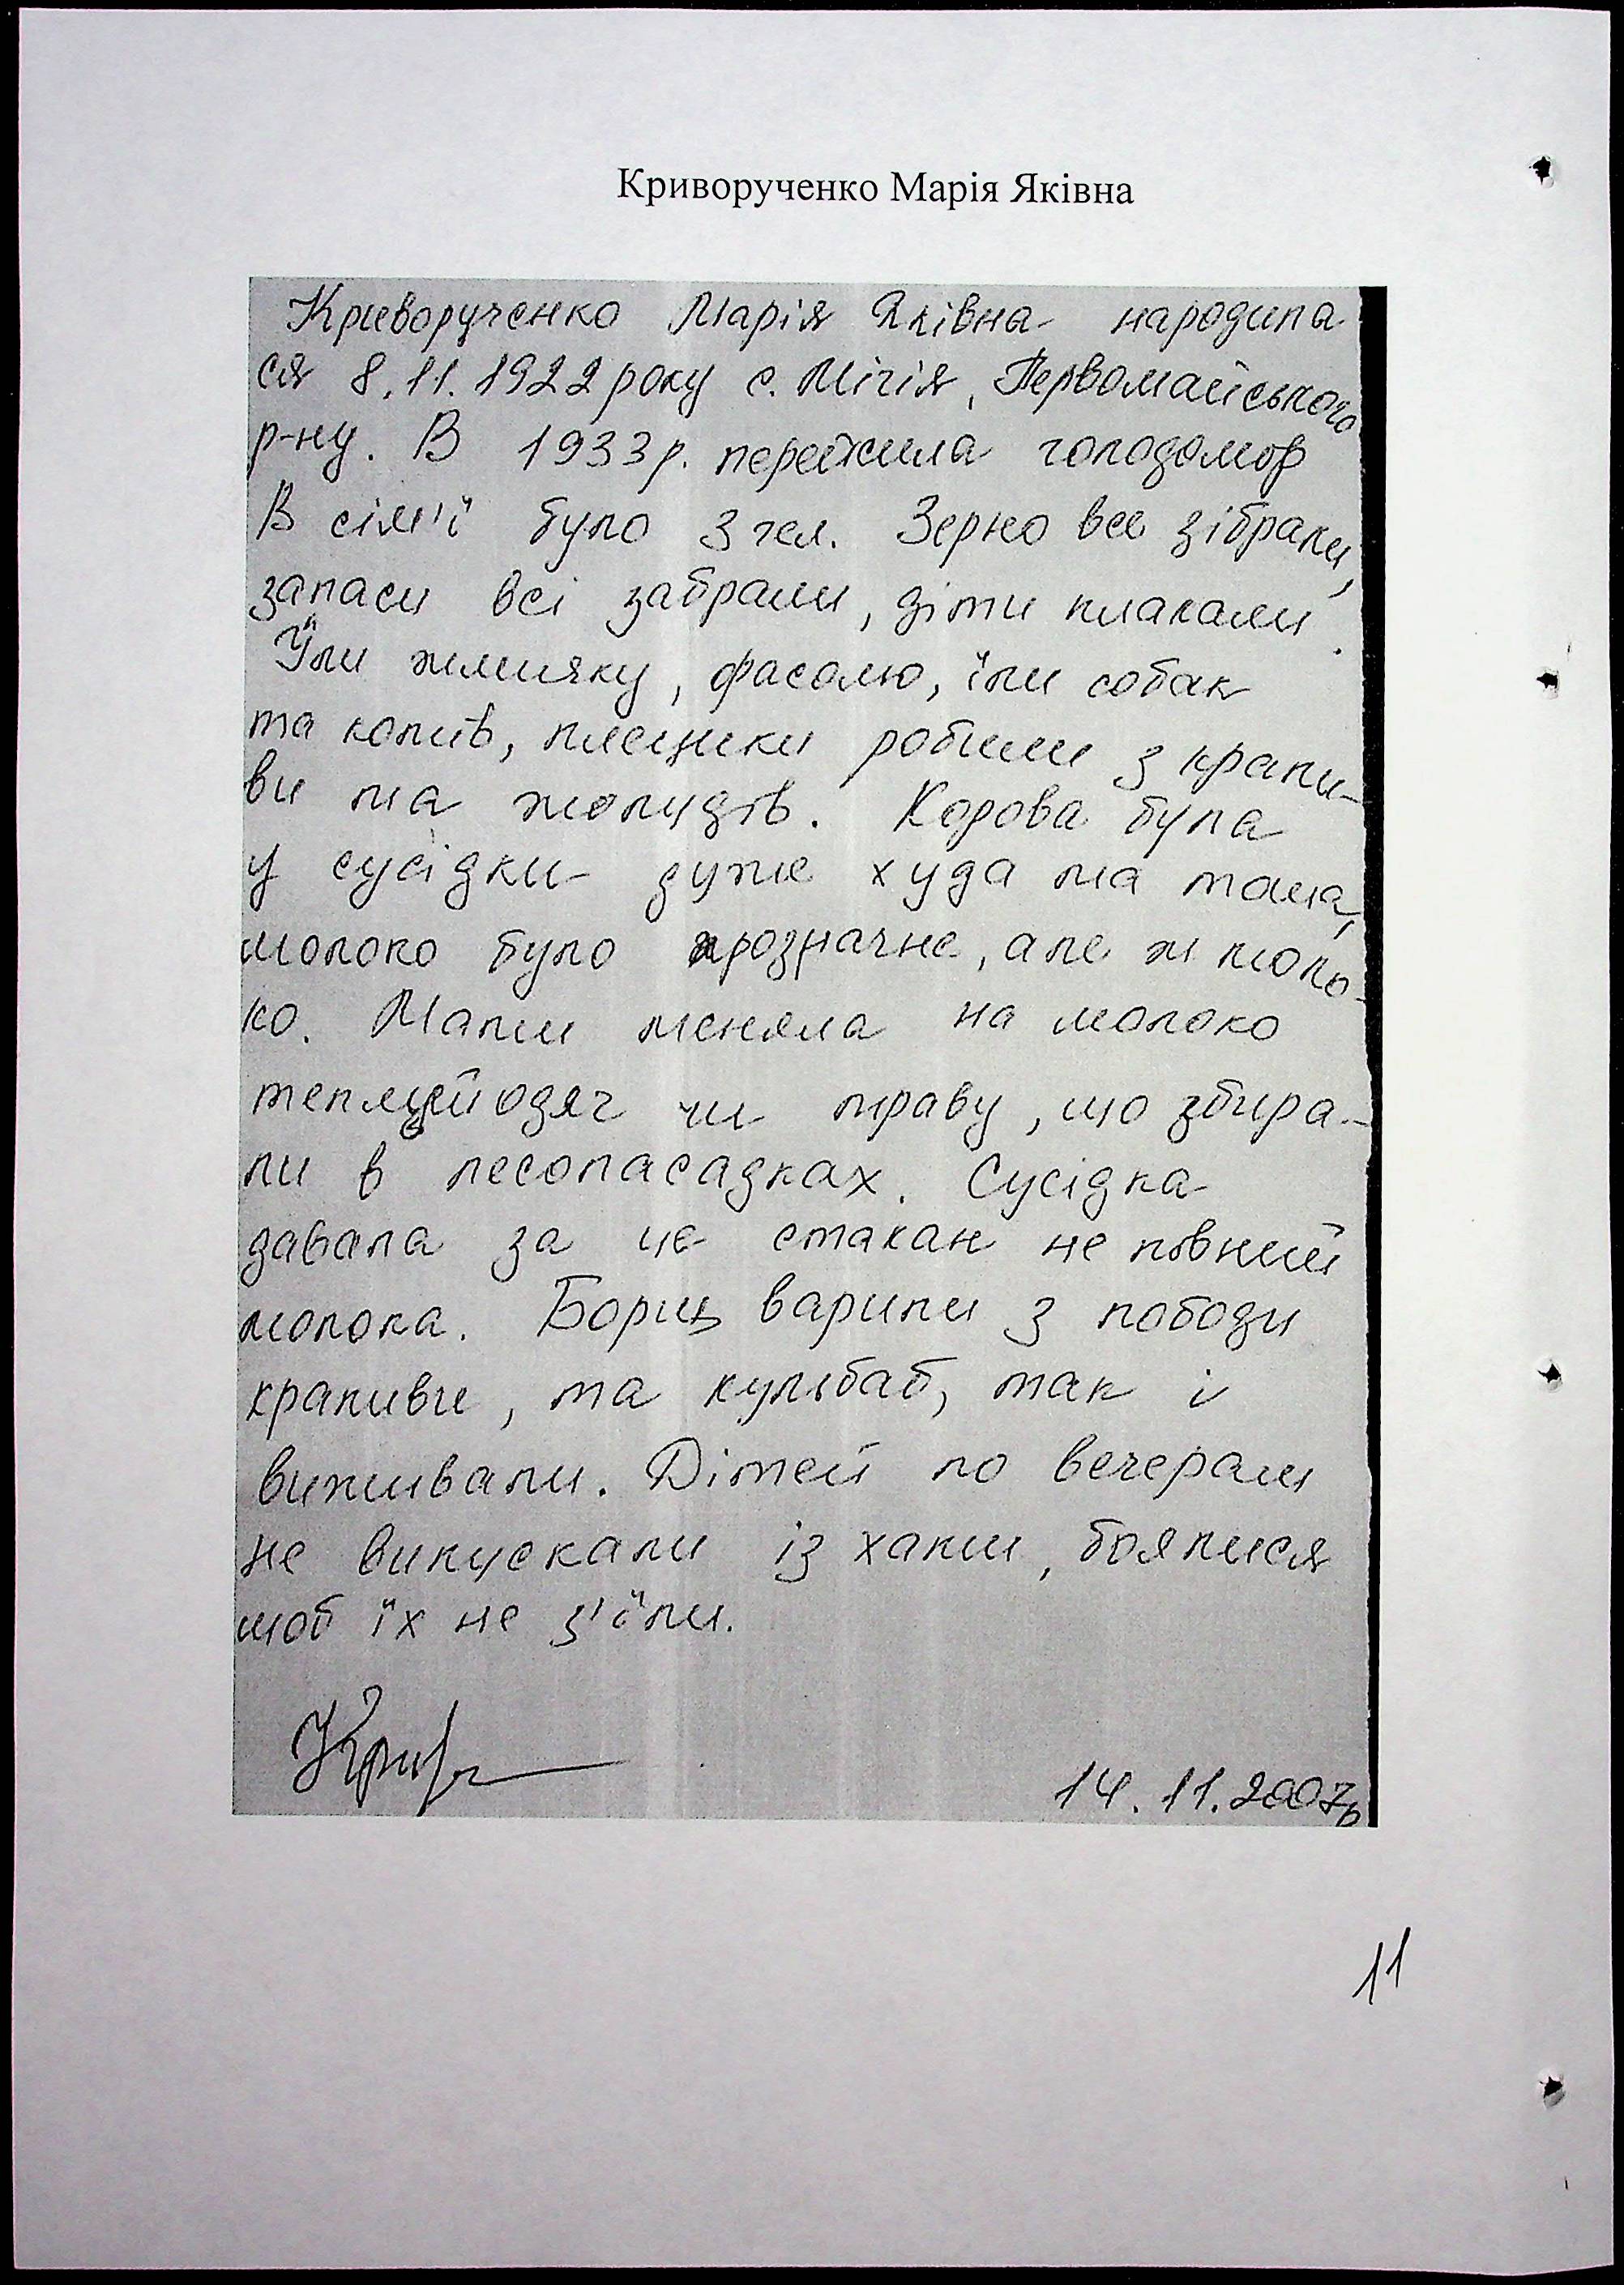 Криворученко Марія Яківна
Криворученко Марія Яківна народила
ся 8.11.1922 року с. Мігія, Первомайського
р-ну. В 1933 р. пережила голодомор
В сім'ї було 3 чел. Зерно все зібрали,
запаси всі забрали, діти плакали.
Їли жмичку, фасолю, їли собак
та котів, плещики робили з крапи-
ви та жолудів. Корова була
у сусідки дуже худа та мала,
молоко було прозрачне, але ж моло-
ко. Мати меняла на молоко
теплий одяг чи траву, що збира-
ли в лесопасадках. Сусідка
давала за це стакан не повний
молока. Борщ варили з лободи
крапиви, та кульбаб, так і
виживали. Дітей по вечерам
не випускали із хати, боялися
щоб їх не з'їли.
14.11.2007р
11